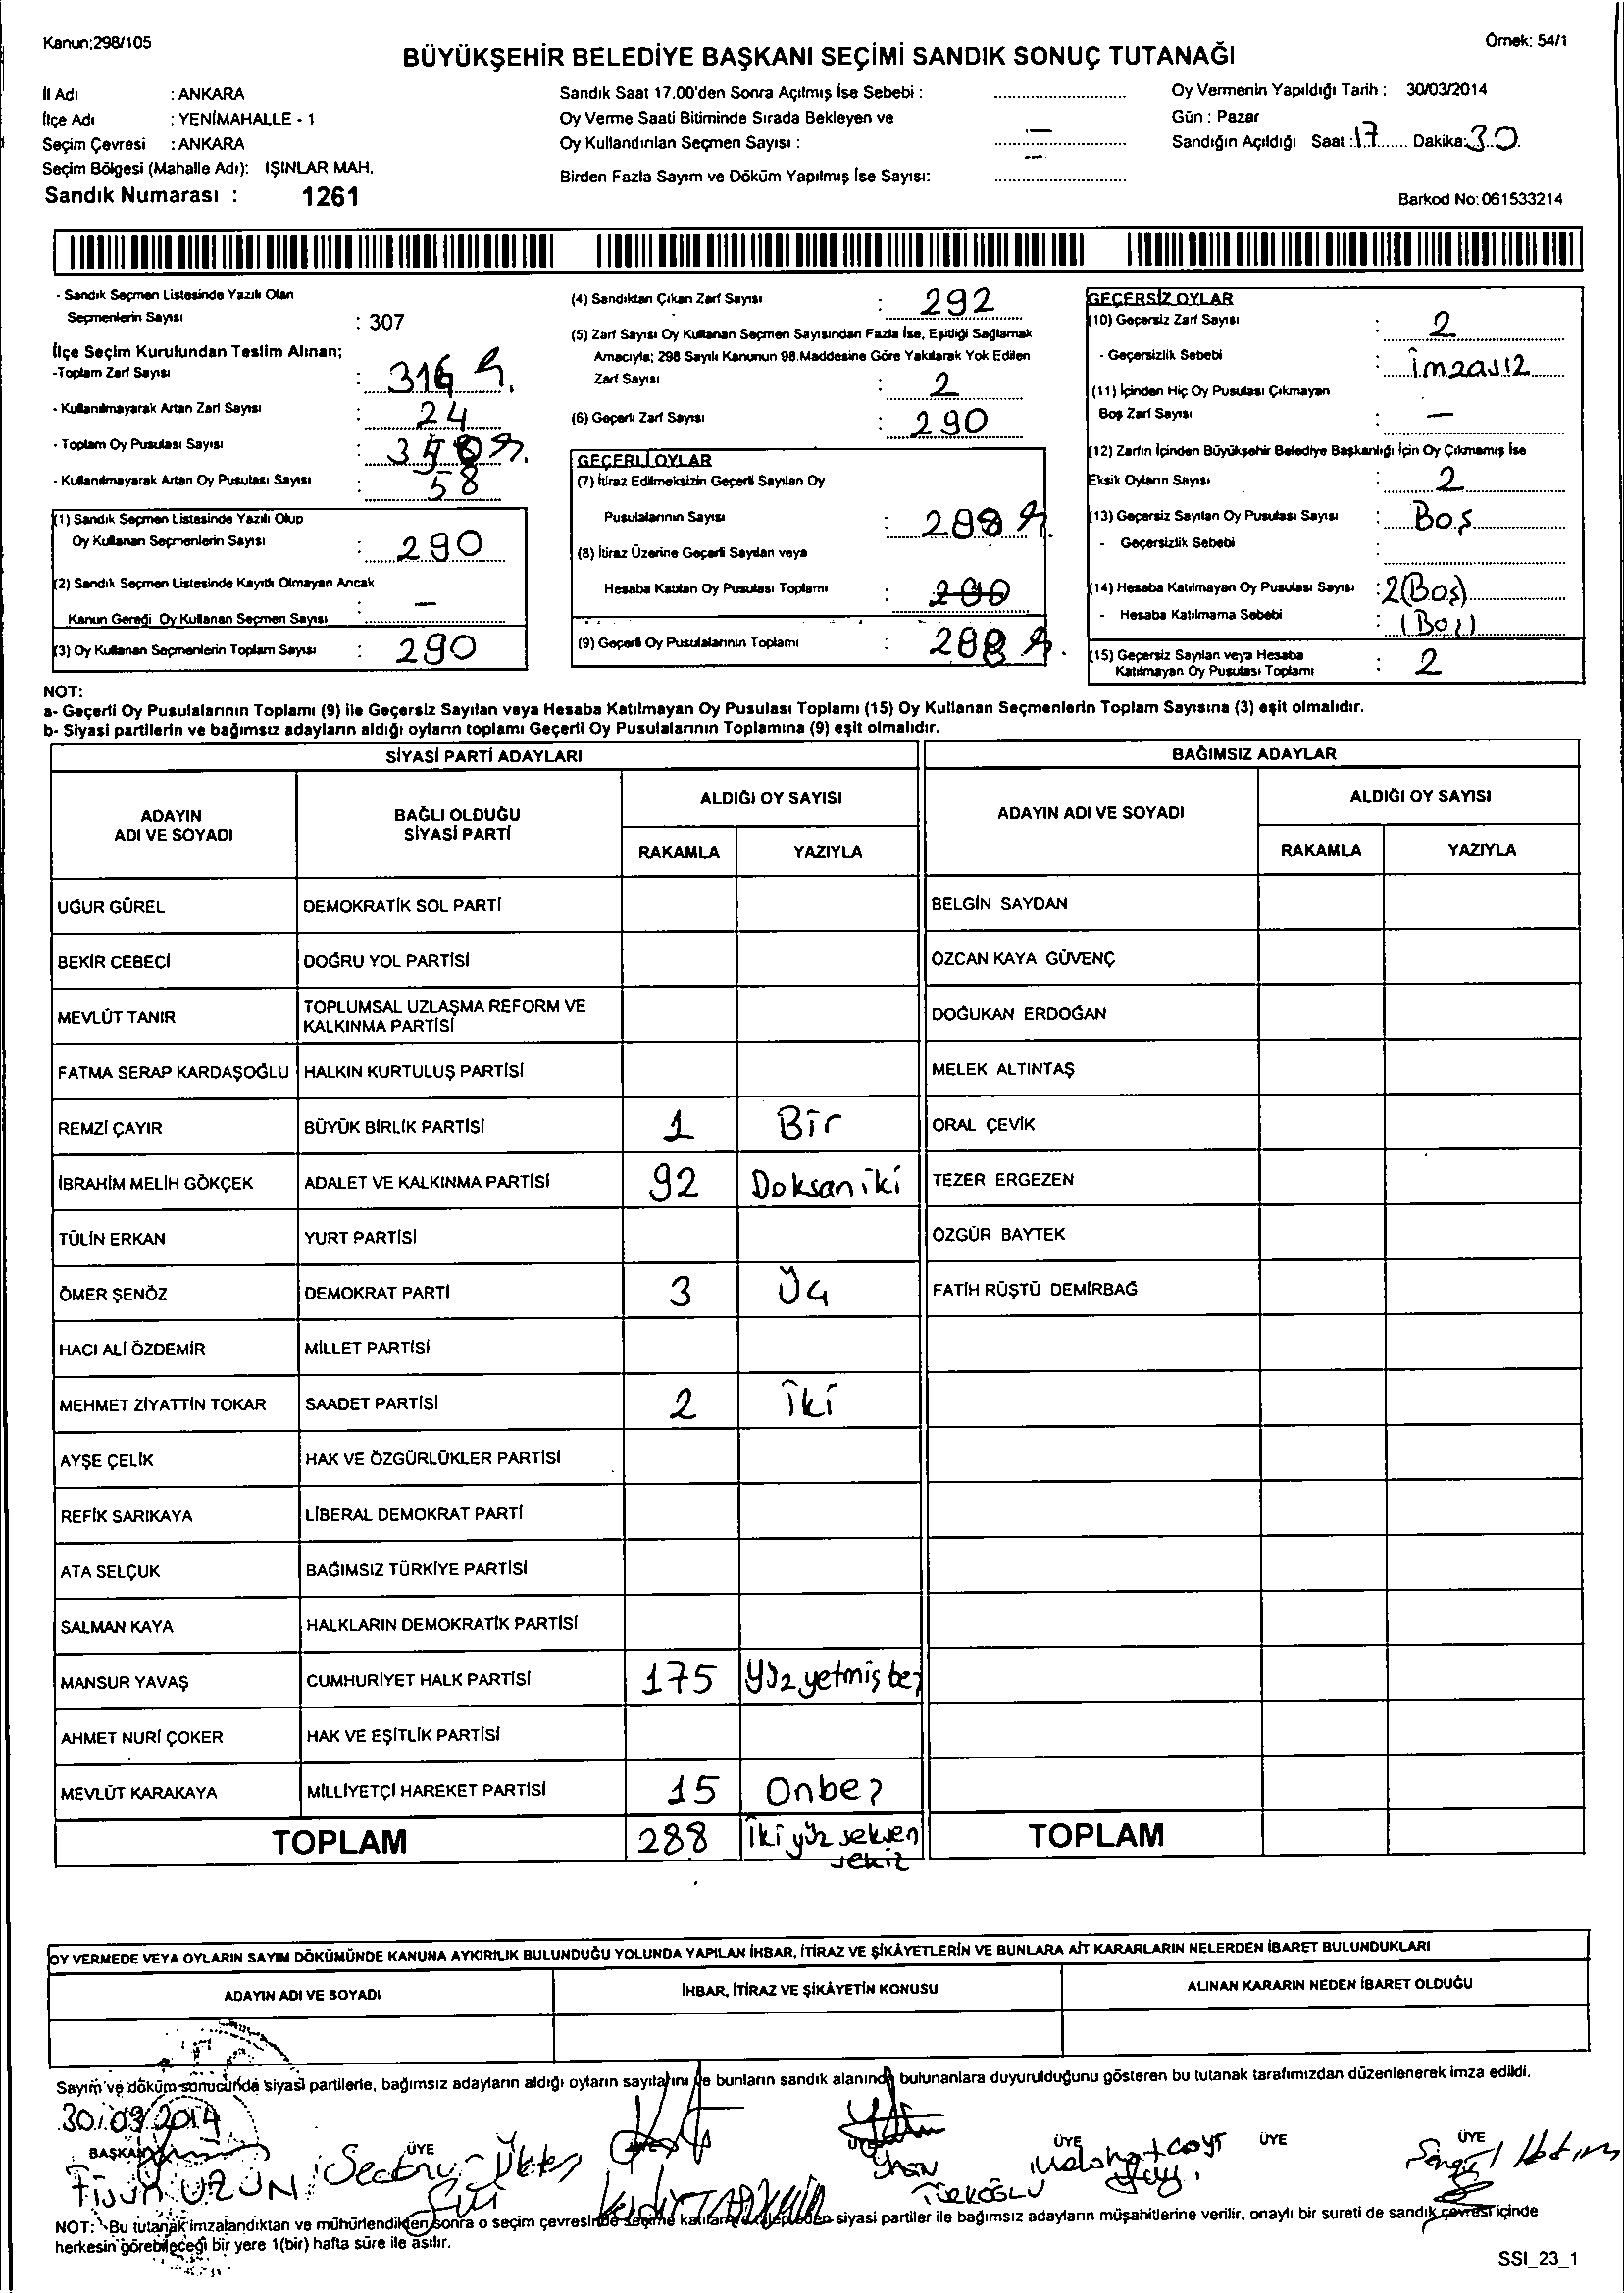 Kanun;298/105
Örnek: 54/1
BÜYÜKŞEHİR BELEDİYE BAŞKANI SEÇİMİ SANDIK SONUÇ TUTANAĞI
İl Adı : ANKARA
İlçe Adı : YENİMAHALLE - 1
Seçim Çevresi : ANKARA
Seçim Bölgesi (Mahalle Adı): IŞINLAR MAH.
Sandık Numarası : 1261
Sandık Saat 17.00'den Sonra Açılmış İse Sebebi :
Oy Verme Saati Bitiminde Sırada Bekleyen ve
Oy Kullandırılan Seçmen Sayısı : —
Birden Fazla Sayım ve Döküm Yapılmış İse Sayısı: —
Oy Vermenin Yapıldığı Tarih : 30/03/2014
Gün : Pazar
Sandığın Açıldığı Saat : 17 Dakika: 30
Barkod No: 061533214
- Sandık Seçmen Listesinde Yazılı Olan
Seçmenlerin Sayısı : 307
İlçe Seçim Kurulundan Teslim Alınan;
-Toplam Zarf Sayısı : 316
- Kullanılmayarak Artan Zarf Sayısı : 24
- Toplam Oy Pusulası Sayısı :
- Kullanılmayarak Artan Oy Pusulası Sayısı : 58
(1) Sandık Seçmen Listesinde Yazılı Olup
Oy Kullanan Seçmenlerin Sayısı : 290
(2) Sandık Seçmen Listesinde Kayıtlı Olmayan Ancak
Kanun Gereği Oy Kullanan Seçmen Sayısı : —
(3) Oy Kullanan Seçmenlerin Toplam Sayısı : 290
(4) Sandıktan Çıkan Zarf Sayısı : 292
(5) Zarf Sayısı Oy Kullanan Seçmen Sayısından Fazla İse, Eşitliği Sağlamak
Amacıyla; 298 Sayılı Kanunun 98.Maddesine Göre Yakılarak Yok Edilen
Zarf Sayısı : 2
(6) Geçerli Zarf Sayısı : 290
GEÇERLİ OYLAR
(7) İtiraz Edilmeksizin Geçerli Sayılan Oy
Pusulalarının Sayısı : 288
(8) İtiraz Üzerine Geçerli Sayılan veya
Hesaba Katılan Oy Pusulası Toplamı :
(9) Geçerli Oy Pusulalarının Toplamı : 288
GEÇERSİZ OYLAR
(10) Geçersiz Zarf Sayısı : 2
- Geçersizlik Sebebi : İmzasız
(11) İçinden Hiç Oy Pusulası Çıkmayan
Boş Zarf Sayısı : —
(12) Zarfın İçinden Büyükşehir Belediye Başkanlığı İçin Oy Çıkmamış İse
Eksik Oyların Sayısı : 2
(13) Geçersiz Sayılan Oy Pusulası Sayısı : Boş
- Geçersizlik Sebebi :
(14) Hesaba Katılmayan Oy Pusulası Sayısı : 2(Boş)
- Hesaba Katılmama Sebebi : (Boş)
(15) Geçersiz Sayılan veya Hesaba
Katılmayan Oy Pusulası Toplamı : 2
NOT:
a- Geçerli Oy Pusulalarının Toplamı (9) ile Geçersiz Sayılan veya Hesaba Katılmayan Oy Pusulası Toplamı (15) Oy Kullanan Seçmenlerin Toplam Sayısına (3) eşit olmalıdır.
b- Siyasi partilerin ve bağımsız adayların aldığı oyların toplamı Geçerli Oy Pusulalarının Toplamına (9) eşit olmalıdır.
SİYASİ PARTİ ADAYLARI
BAĞIMSIZ ADAYLAR
ADAYIN
ADI VE SOYADI
BAĞLI OLDUĞU
SİYASİ PARTİ
ALDIĞI OY SAYISI
RAKAMLA YAZIYLA
ADAYIN ADI VE SOYADI
ALDIĞI OY SAYISI
RAKAMLA YAZIYLA
UĞUR GÜREL DEMOKRATİK SOL PARTİ BELGİN SAYDAN
BEKİR CEBECİ DOĞRU YOL PARTİSİ ÖZCAN KAYA GÜVENÇ
MEVLÜT TANIR TOPLUMSAL UZLAŞMA REFORM VE
KALKINMA PARTİSİ DOĞUKAN ERDOĞAN
FATMA SERAP KARDAŞOĞLU HALKIN KURTULUŞ PARTİSİ MELEK ALTINTAŞ
REMZİ ÇAYIR BÜYÜK BİRLİK PARTİSİ 1 Bir ORAL ÇEVİK
İBRAHİM MELİH GÖKÇEK ADALET VE KALKINMA PARTİSİ 92 Doksan iki TEZER ERGEZEN
TÜLİN ERKAN YURT PARTİSİ ÖZGÜR BAYTEK
ÖMER ŞENÖZ DEMOKRAT PARTİ 3 Üç FATİH RÜŞTÜ DEMİRBAĞ
HACI ALİ ÖZDEMİR MİLLET PARTİSİ
MEHMET ZİYATTİN TOKAR SAADET PARTİSİ 2 İki
AYŞE ÇELİK HAK VE ÖZGÜRLÜKLER PARTİSİ
REFİK SARIKAYA LİBERAL DEMOKRAT PARTİ
ATA SELÇUK BAĞIMSIZ TÜRKİYE PARTİSİ
SALMAN KAYA HALKLARIN DEMOKRATİK PARTİSİ
MANSUR YAVAŞ CUMHURİYET HALK PARTİSİ 175 Yüz yetmiş beş
AHMET NURİ ÇOKER HAK VE EŞİTLİK PARTİSİ
MEVLÜT KARAKAYA MİLLİYETÇİ HAREKET PARTİSİ 15 Onbeş
TOPLAM 288 İki yüz seksen TOPLAM
sekiz
OY VERMEDE VEYA OYLARIN SAYIM DÖKÜMÜNDE KANUNA AYKIRILIK BULUNDUĞU YOLUNDA YAPILAN İHBAR, İTİRAZ VE ŞİKÂYETLERİN VE BUNLARA AİT KARARLARIN NELERDEN İBARET BULUNDUKLARI
ADAYIN ADI VE SOYADI İHBAR, İTİRAZ VE ŞİKÂYETİN KONUSU ALINAN KARARIN NEDEN İBARET OLDUĞU
Sayım ve döküm sonucunda siyasi partilerle, bağımsız adayların aldığı oyların sayılarını ve bunların sandık alanında bulunanlara duyurulduğunu gösteren bu tutanak tarafımızdan düzenlenerek imza edildi.
30/03/2014
BAŞKAN ÜYE ÜYE ÜYE ÜYE ÜYE
UZUN
TÜRKOĞLU
NOT: Bu tutanak imzalandıktan ve mühürlendikten sonra o seçim çevresinde seçime katılan, talep eden siyasi partiler ile bağımsız adayların müşahitlerine verilir, onaylı bir sureti de sandık çevresi içinde
herkesin görebileceği bir yere 1(bir) hafta süre ile asılır.
SSI_23_1